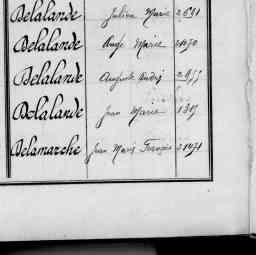 Delalande Julien Marie 2691
Delalande Ange Marie
Delalande Auguste André 2977
Delalande Jean Marie 1317
Delamarche Jean Marie François 21471